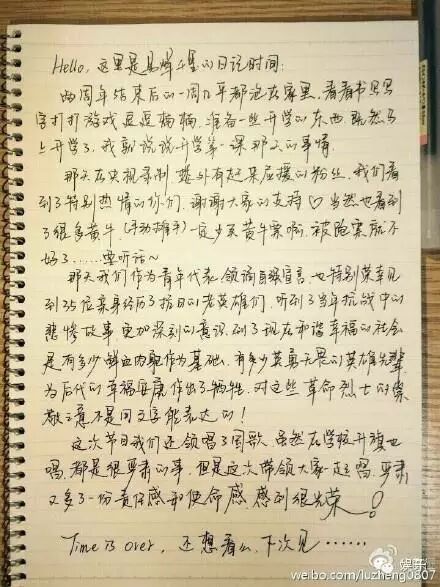 Hello，这里是易烊千玺的日记时间：
两周年结束后的一周几乎都泡在家里，看看书写写
字打打游戏逗逗楠楠，准备一些开学的东西。既然马
上开学了，我就说说开学第一课那天的事情。
那天在央视录制，楼外有赶来应援的粉丝，我们看
到了特别热情的你们，谢谢大家的支持♡当然也看到
了很多黄牛，(手动雄牛)一定少买黄牛票啊，被炮票就不
好了……要听话~
那天我们作为青年代表，领诵自强宣言，也特别荣幸见
到35位亲身经历了抗日的老英雄们，听到了当年抗战中的
悲惨故事更加深刻的意识到了现在和谐幸福的社会
是有多少鲜血肉躯作为基础，有多少英勇无畏的英雄先辈
为后代的幸福安康作出了牺牲，对这些革命烈士的崇
敬之意不是问文字能表达的！
这次节目我们还领唱了国歌，虽然在学校升旗也
唱，都是很严肃的事，但是这次带领大家一起唱，严肃
又多了一份责任感和使命感，感到很光荣！
Time is over，还想看么，下次见……
娱乐
weibo.com/luzheng0807